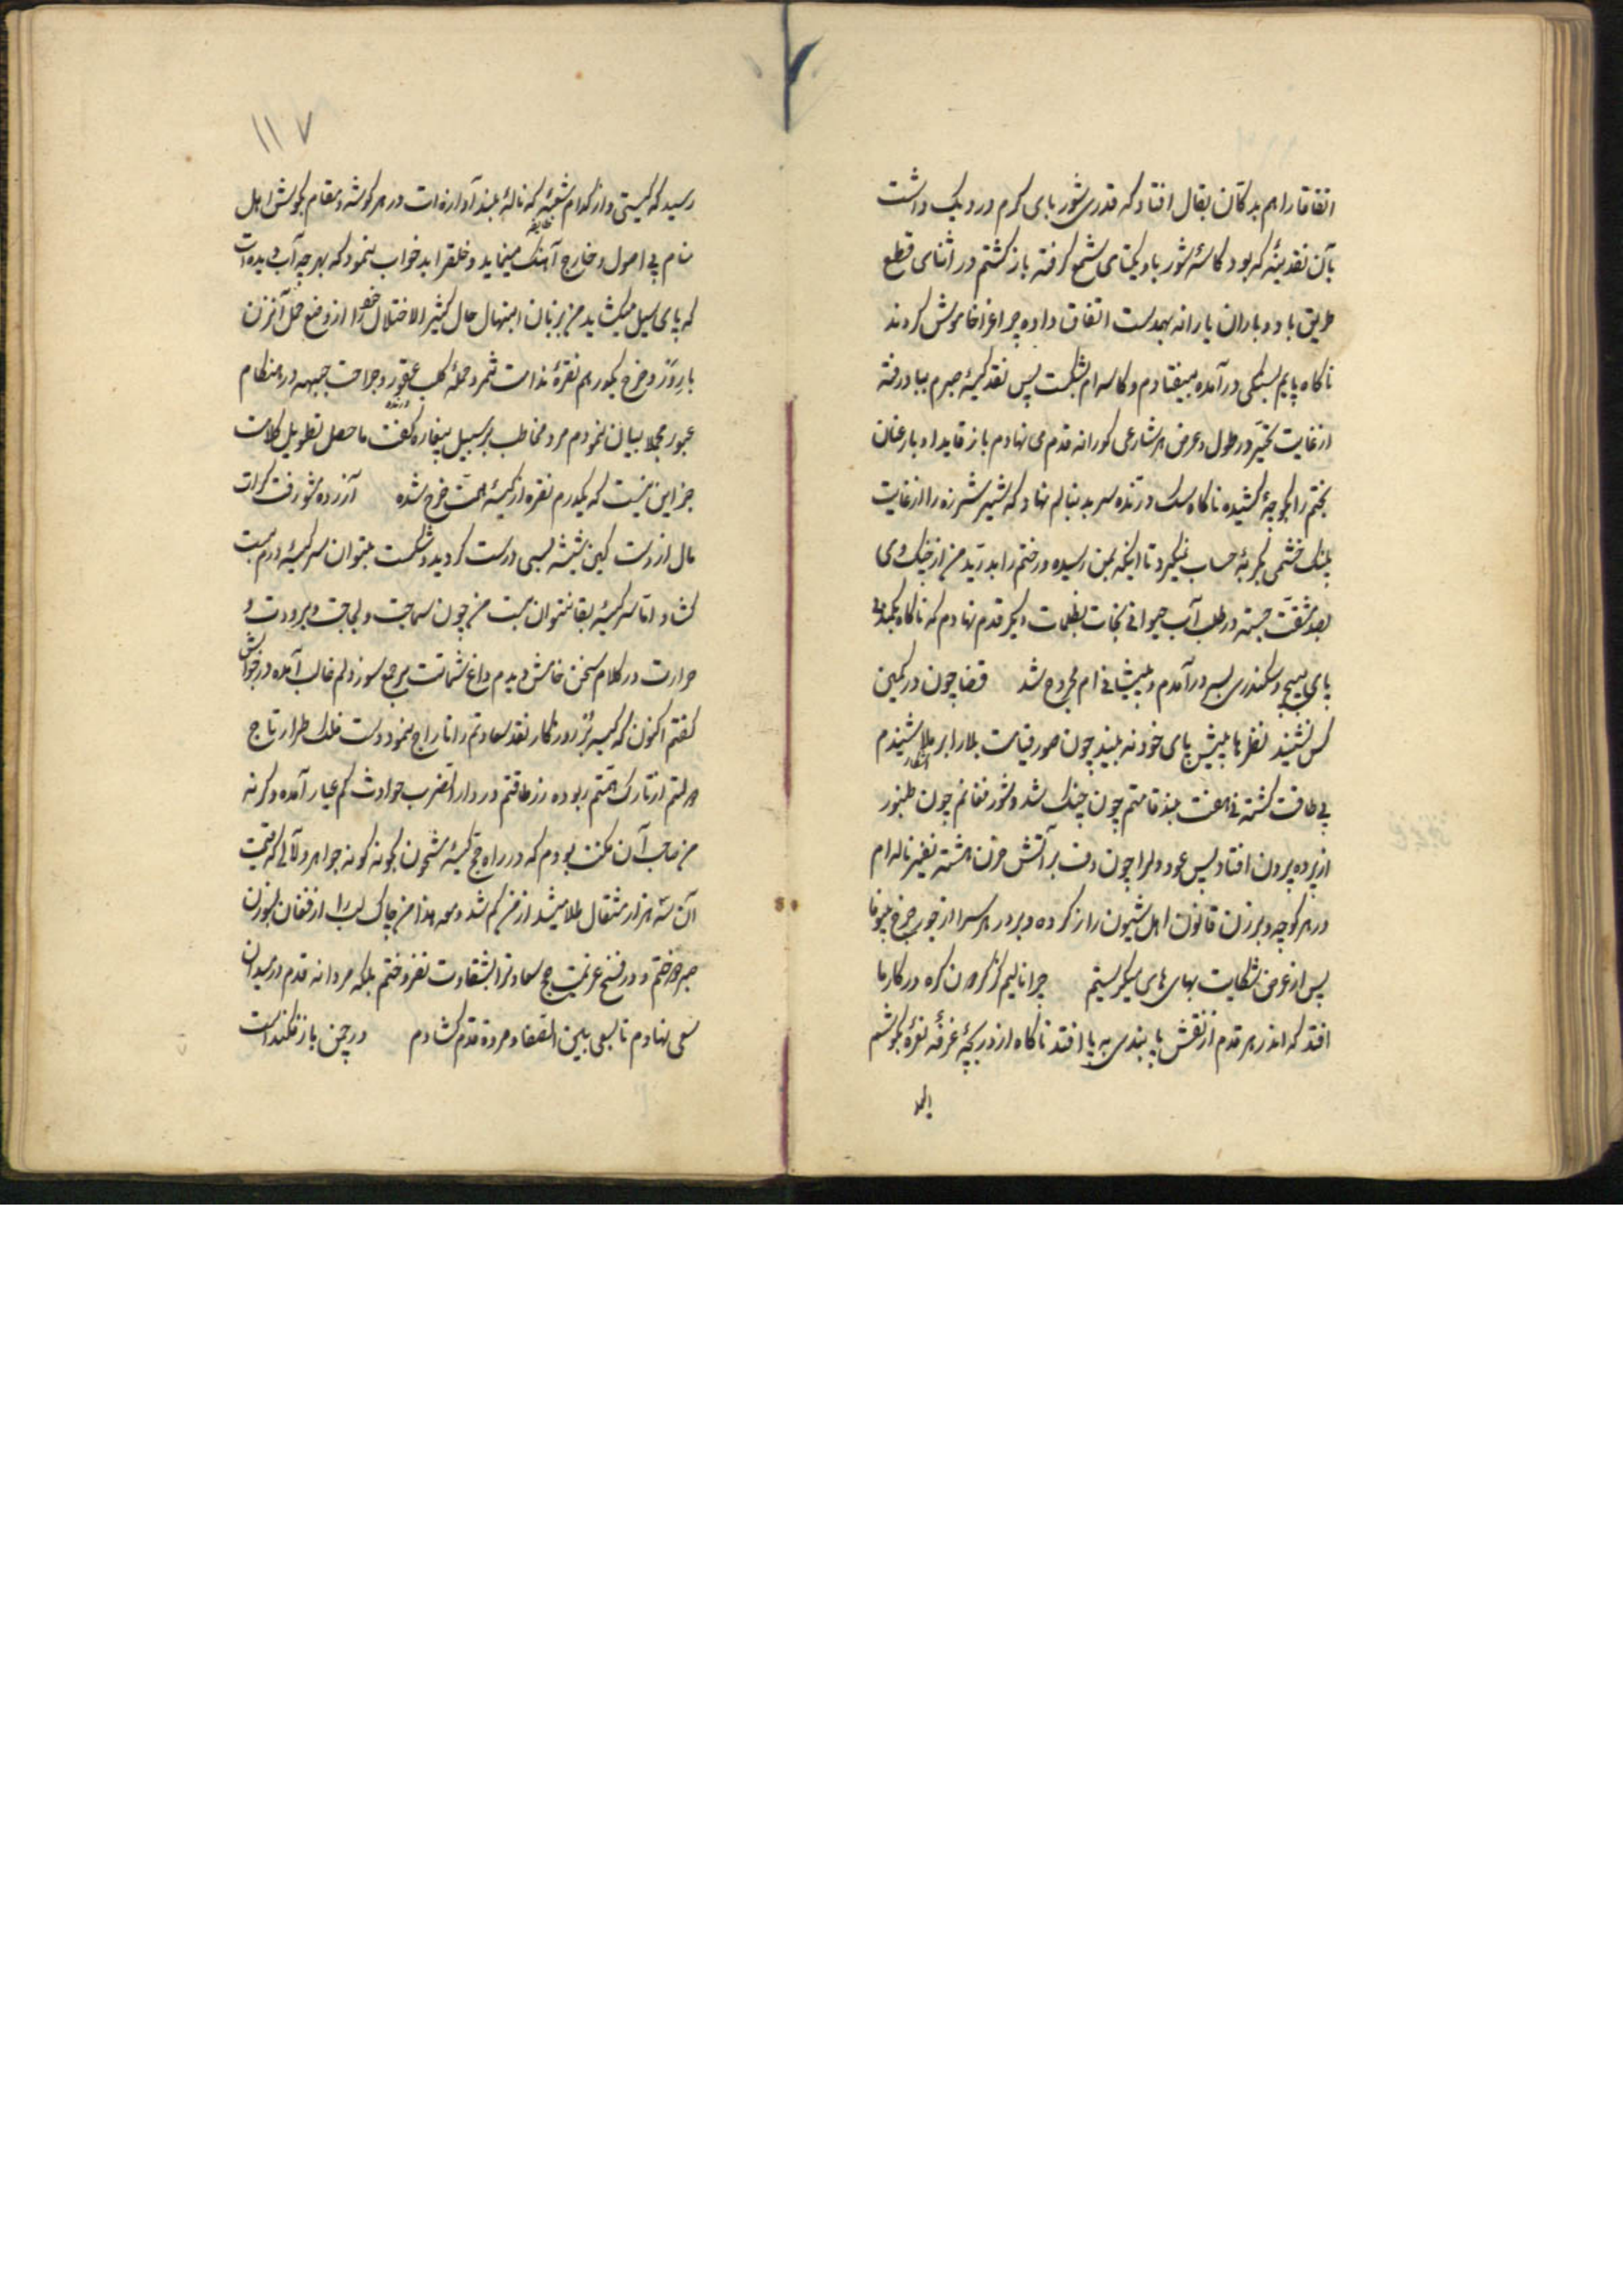 اتفاقا راهم بدکان بقال افتاد که قدری شوربای گرم در دیک داشت
بآن نقدینهٔ که بود کاسهٔ شوربا و یکتای شمع گرفته بازگشتم در اثنای قطع
طریق باد و باران یارانه بهمدست اتفاق داده چراغرا خاموش کردند
ناکاه پایم بسنکی درآمده بیفتادم و کاسه ام بشکست پس نقد کیسهٔ صبرم بباد رفته
از غایت تحیّر در طول و عرض هر شارعی کورانه قدم می نهادم باز قاید ادبار عنان
بختم را بکوچهٔ کشیده ناکاه سک درنده سر بدنبالم نهاد که شیر شرزه را از غایت
پلنک خشمی بکربهٔ حساب نمیکرد تا اینکه بمن رسیده رختم را بدرید من از چنک وی
بصد مشقّت جسته در طلب آب حیوانی نجات بظلمات دیکر قدم نهادم که ناکاه
پای بسیج و سکندری بسر درآمدم و پیشانی ام مجروح شد قضا چون در کمین
کس نشیند نظرها پیش پای خود نه بیند چون صور قیامت بلا را
بی طاقت کشته قامتم چون چنک شد و شور فغانم چون طنبور
از پرده بیرون افتاد پس عود دلرا چون دف بر آتش حزن هشته نفیر ناله ام
در هر کوچه و برزن قانون اهل شیون راز کرده و بر در هر سرا از جور چرخ بیوفا
پس از عرض شکایت بهای های میکریستم چرا نالیم کز کردن کره در کار ما
افتد که اندر هر قدم از نقش پا بندی به پا افتد ناکاه از دریچهٔ غرفهٔ نعرهٔ بکوشم
۱۱۷
رسید که کیستی و از کدام شعبهٔ که نالهٔ بلند آوازه ات در هر کوشه و مقام بکوش اهل
منام بی اصول و خارج آهنک مینماید و خلقرا بدخواب نمود که بهر چه آب دیده ات
که پای سیل میکشاید من بزبان ابتهال حال کثیر الاختلال خود را از وضع حمل آنزن
باردار و خرج یکدرهم نقرهٔ و حملهٔ کلب عقور درنده و جراحت جبهه در هنکام
عبور مجملا بیان نمودم مرد مخاطب بر سبیل بیغاره کفت ما حصل تطویل کلامت
جز این نیست که یکدرم نقره از کیسهٔ همّت خرج شده آزرده مشو رفت کرت
مال از دست کین شیشه بسی درست کردید و شکست بتوان سر کیسهٔ درم بست
کشاد اما سر کیسهٔ بقا نتوان بست من چون سماجت و لجاجت و برودت و
حرارت در کلام سخن خامش دیدم داغ شماتت بر سوز دلم غالب آمده در جوابش
کفتم اکنون که کیسه بُر روزکار نقد سعادتم را تاراج نمود و دست فلک طرار تاج
دولتم از تارک همّتم ربوده زر طاقتم در دار الضرب حوادث کم عیار آمده وکرنه
من صاحب آن مکنت بودم که در راه حج کیسهٔ مشحون بکونه کونه جواهر و لآلی که قیمت
آن سه هزار مثقال طلا میشد از من کم شد و مع هذا من چاک لب را از فغان
صبر دوختم و در فسخ عزیمت حج سعادترا بشقاوت نفروختم بلکه مردانه قدم در میدان
سعی نهادم تا بسعی بین الصفا و مروة قدم کشادم در چمن باز